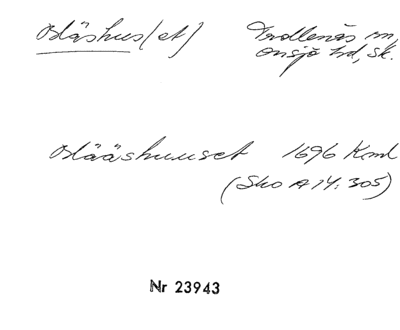 Blåshus(et) Trollenäs sn,
Onsjö hd, Sk.
Blååshuuset 1696 Kml
(Sko A 14: 305)
Nr 23943